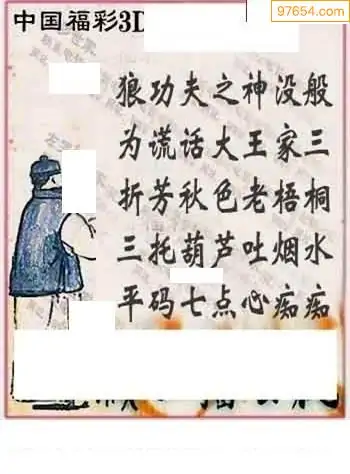 97654.com
中国福彩3D
狼功夫之神没般
为谎话大王家三
折芳秋色老梧桐
三托葫芦吐烟水
平码七点心痴痴